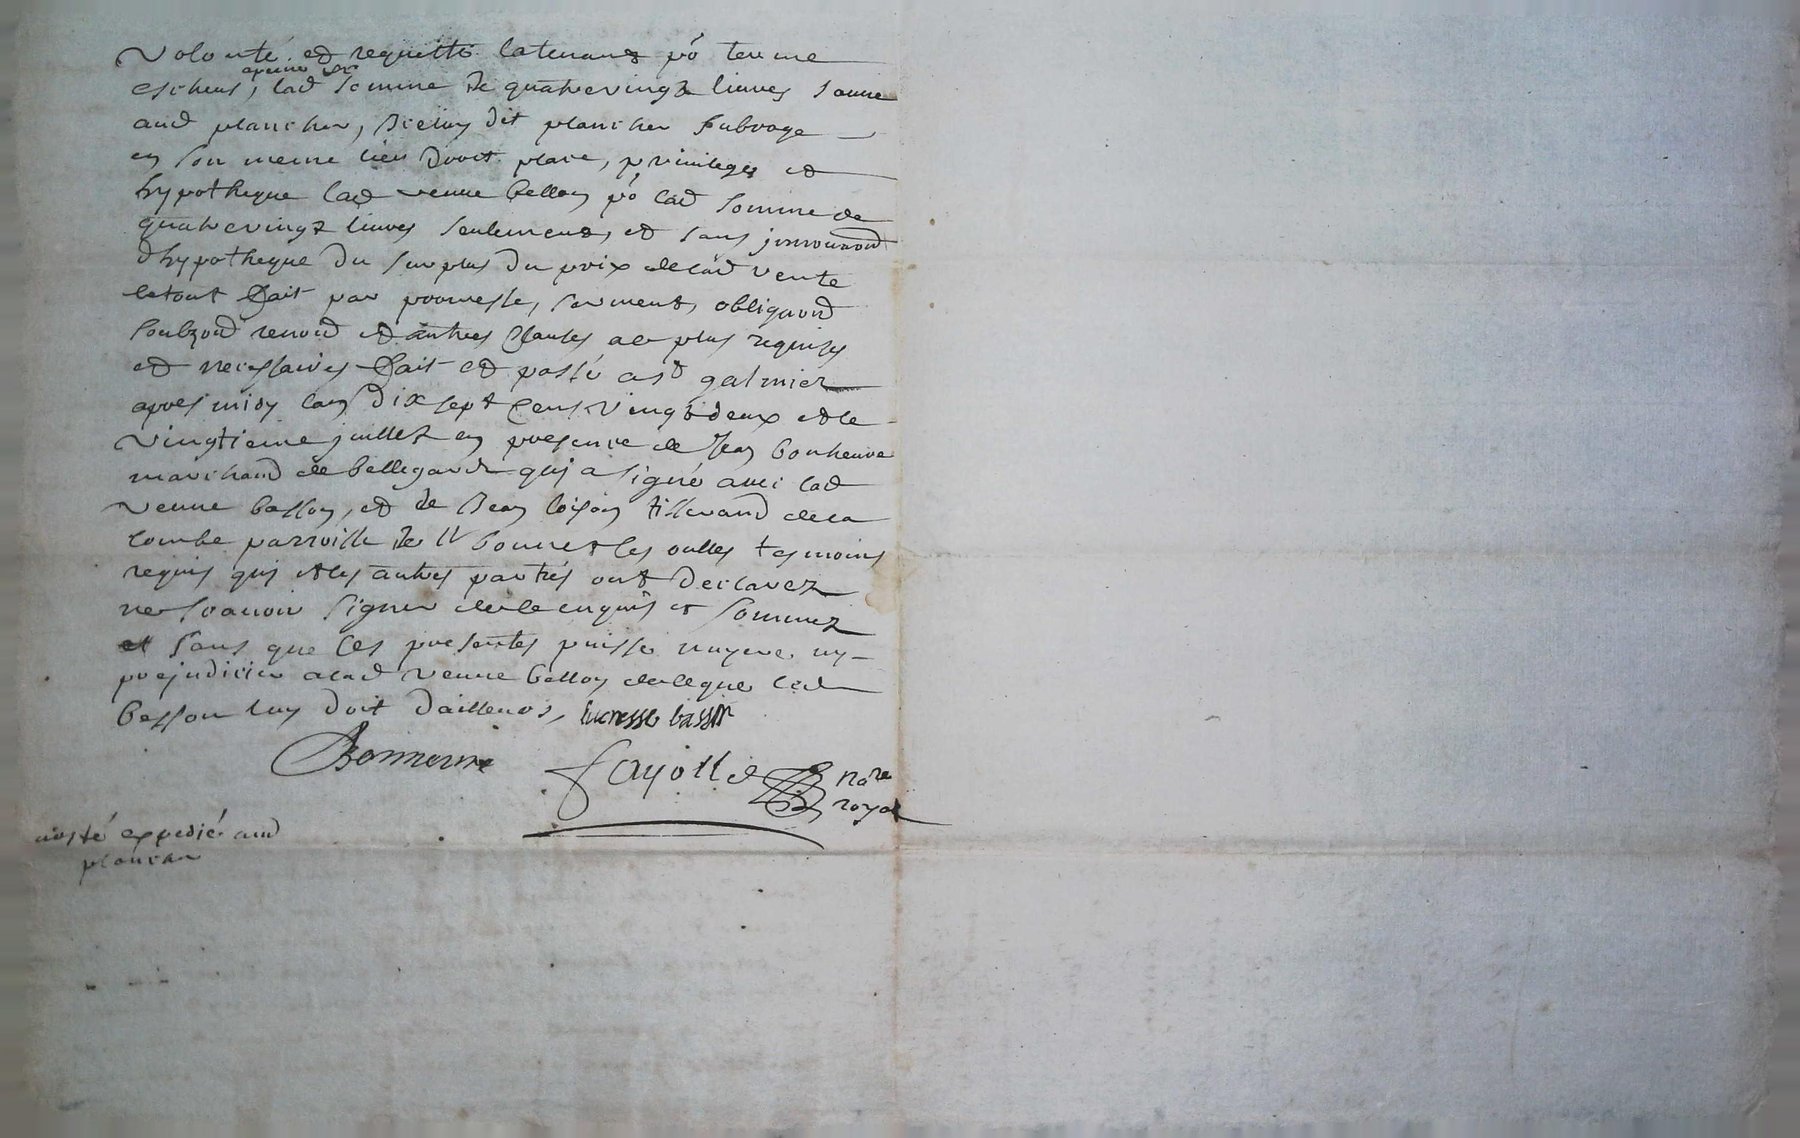 volonté et requitte latenant po terme
apeine de
escheus, lad somme de quatrevingt livres
aud plancher, dicelluy dit plancher subroge
en son meme lieu droit place, privileges et
hypotheque lad veuve besson po lad somme de
quatrevingt livres seulement, et sans
dhypotheque du surplus du prix delad vente
letout fait par promesse, serment, obligaond
soubzond renond et autres clauses au plus requises
et necessaires fait et passé a st galmier
apres midy lan dix sept cens vingt deux et le
vingtieme juillet en presence de Jean bonheure
marchand de bellegarde qui a signé avec lad
veuve besson, et de Jean tisserand dela
combe parroisse de st bonnet les oulles tesmoins
requis qui et les autres parties ont declarez
ne scavoir signer de ce enquis et sommez
et sans que les presentes puisse nuyre ny
prejudicier a lad veuve besson de ce que led
besson luy doit dailleurs, lucresse
Bonheure
fayolle nore
royal
expedié aud
plancher